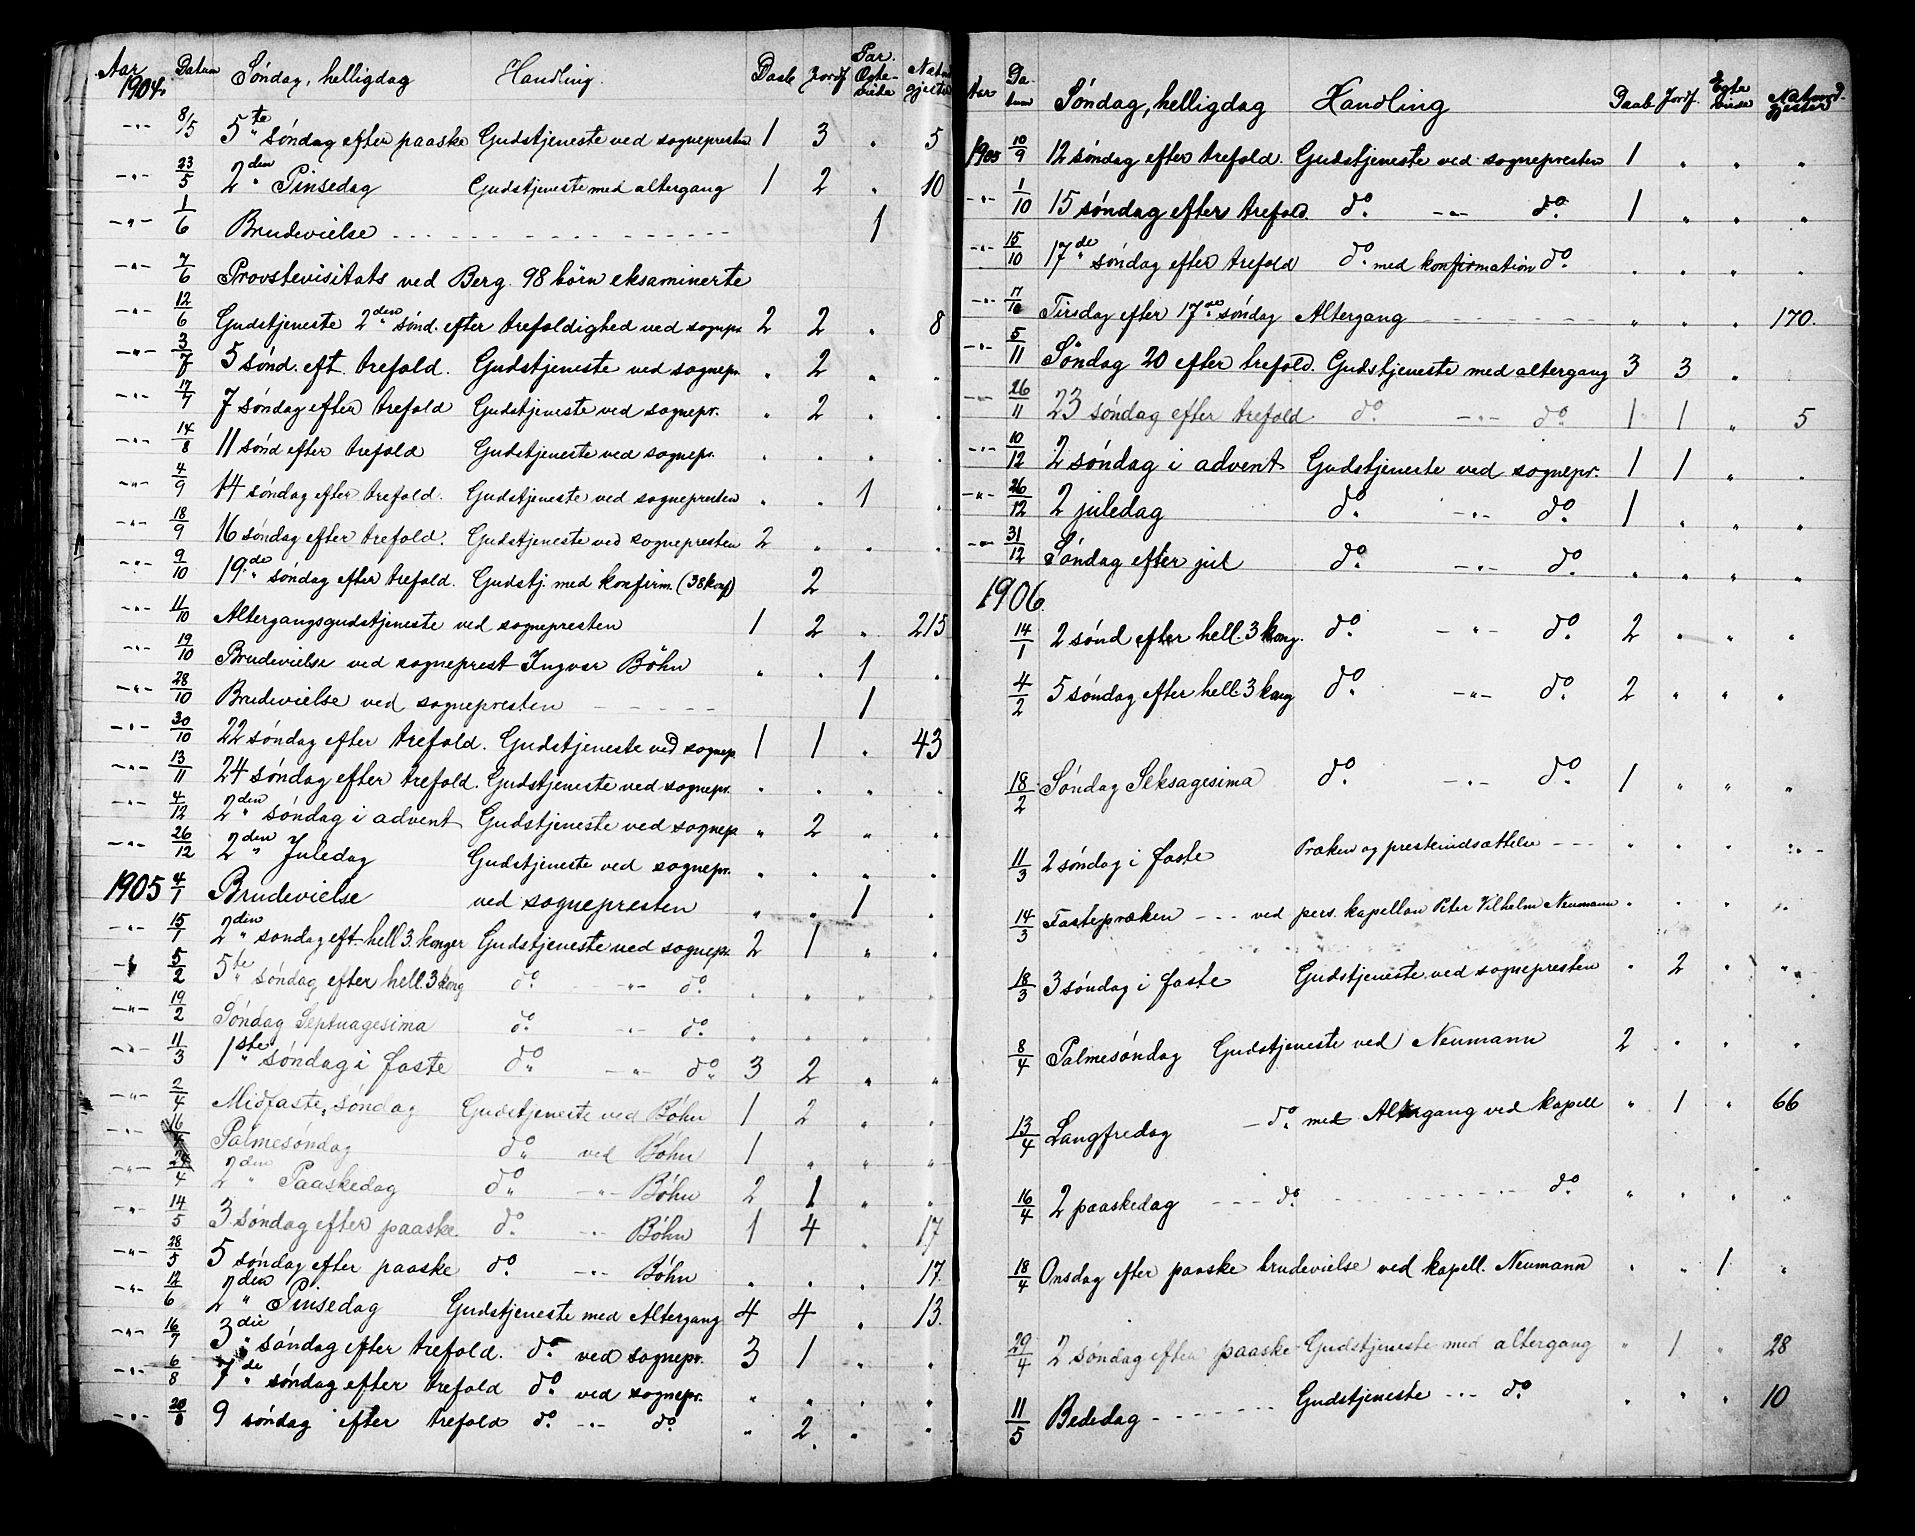 Aar 1904. Datum Søndag, helligdag Handling. Daab Jordf. Par Egte- viede Natv. gjester
-"- 8/5 5te søndag efter paaske Gudstjeneste ved sognepresten 1 3 . 5
-"- 23/5 2den Pinsedag Gudstjeneste med altergang 1 2 . 10
-"- 1/6 Brudevielse - - - - - - 1
-"- 7/6 Provstevisitats ved Berg. 98 børn eksaminerte
-"- 12/6 Gudstjeneste 2den sønd. efter trefoldighed ved sognepr. 2 2 . 8
-"- 3/7 5 sønd. eft. trefold. Gudstjeneste ved sognepr. . 2 . .
-"- 17/7 7 søndag efter trefold Gudstjeneste ved sognepr. . 2 . .
-"- 14/8 11 sønd efter trefold Gudstjeneste ved sognepr. . . . .
-"- 4/9 14 søndag efter trefold. Gudstjeneste ved sognepresten . . 1 .
-"- 18/9 16 søndag efter trefold. Gudstjeneste ved sognepresten 2 . . .
-"- 9/10 19de søndag efter trefold. Gudstj. med konfirm. (38 konf) 2
-"- 11/10 Altergangsgudstjeneste ved sognepresten 1 2 . 215
-"- 19/10 Brudevielse ved sogneprest Ingvar Bøhn . . 1 .
-"- 28/10 Brudevielse ved sognepresten - - - - - 1
-"- 30/10 22 søndag efter trefold. Gudstjeneste ved sognepr. 1 1 . 43
-"- 13/11 24 søndag efter trefold. Gudstjeneste ved sognepr. . . . .
-"- 4/12 2den søndag i advent Gudstjeneste ved sognepr " 2 " .
-"- 26/12 2den Juledag Gudstjeneste ved sognepr. . . " .
1905 4/1 Brudevielse ved sognepresten " . 1 .
-"- 15/1 2den søndag eft hell 3. konger Gudstjeneste ved sognepr. 2 1 " .
-"- 5/2 5te søndag efter hell. 3 kong do. -"- do. . . . .
-"- 19/2 Søndag Septuagesima do. -"- do. . . . .
-"- 11/3 1ste søndag i faste do -"- do. 3 2 " "
-"- 2/4 Midfaste, søndag Gudstjeneste ved Bøhn 1 2 . .
-"- 16/4 Palmesøndag do. ved Bøhn 1 " " "
-"- 24/4 2den Paaskedag do. -"- Bøhn 2 1 . .
-"- 14/5 3. søndag efter paaske. do. -"- Bøhn 1 4 . 17
-"- 28/5 5 søndag efter paaske do. -"- Bøhn . . . 17.
-"- 12/6 2den Pinsedag Gudstjeneste med Altergang 4 4 . 13.
-"- 16/7 3die søndag efter trefold. do. ved sognepr. 3 1 . .
-"- 6/8 7de søndag efter trefold do. ved sognepr. " . . .
-"- 20/8 9 søndag efter trefold do. -"- do. " 2. . "
Aar Da- tum Søndag, helligdag Handling Daab Jordf. Egte viede Natverd- gjester
1905 10/9 12 søndag efter trefold. Gudstjeneste ved sognepresten 1 " " "
-"- 1/10 15 søndag efter trefold. do. -"- do. 1 " " .
-"- 15/10 17de søndag efter trefold do. med konfirmation do. . . . .
-"- 17/10 Tirsdag efter 17de søndag Altergang - - - - - " . . 170.
-"- 5/11 Søndag 20 efter trefold. Gudstjeneste med altergang 3 3 "
-"- 26/11 23 søndag efter trefold do -"- do. 1 1 " 5
-"- 10/12 2 søndag i advent Gudstjeneste ved sognepr. 1 1 " .
-"- 26/12 2 juledag do. -"- do. 1 " " "
-"- 31/12 Søndag efter jul do. -"- do. " " " "
1906.
14/1 2 sønd efter hell. 3 kong. do. -"- do. 2 " " "
4/2 5 søndag efter hell. 3 kong do. -"- do. 2 " " "
18/2 Søndag Seksagesima do. -"- do. 1 " " "
11/3 2 søndag i faste Præken og presteindsættelse - - - " " " "
14/3 Fastepræken - - - ved pers. kapellan Peter Vilhelm Neumann " . " "
18/3 3 søndag i faste Gudstjeneste ved sognepresten . 2 " "
8/4 Palmesøndag Gudstjeneste ved Neumann 2 " " "
13/4 Langfredag - do. med Altergang ved kapell " 1 " 66
16/4 2 paaskedag - - - do. - - - - - do. " . " "
18/4 Onsdag efter paaske brudevielse ved kapell. Neumann " " 1 "
29/4 2 søndag efter paaske - Gudstjeneste med altergang " 1 " 28
11/5 Bededag - - - - - Gudstjeneste - - - do " " " 10